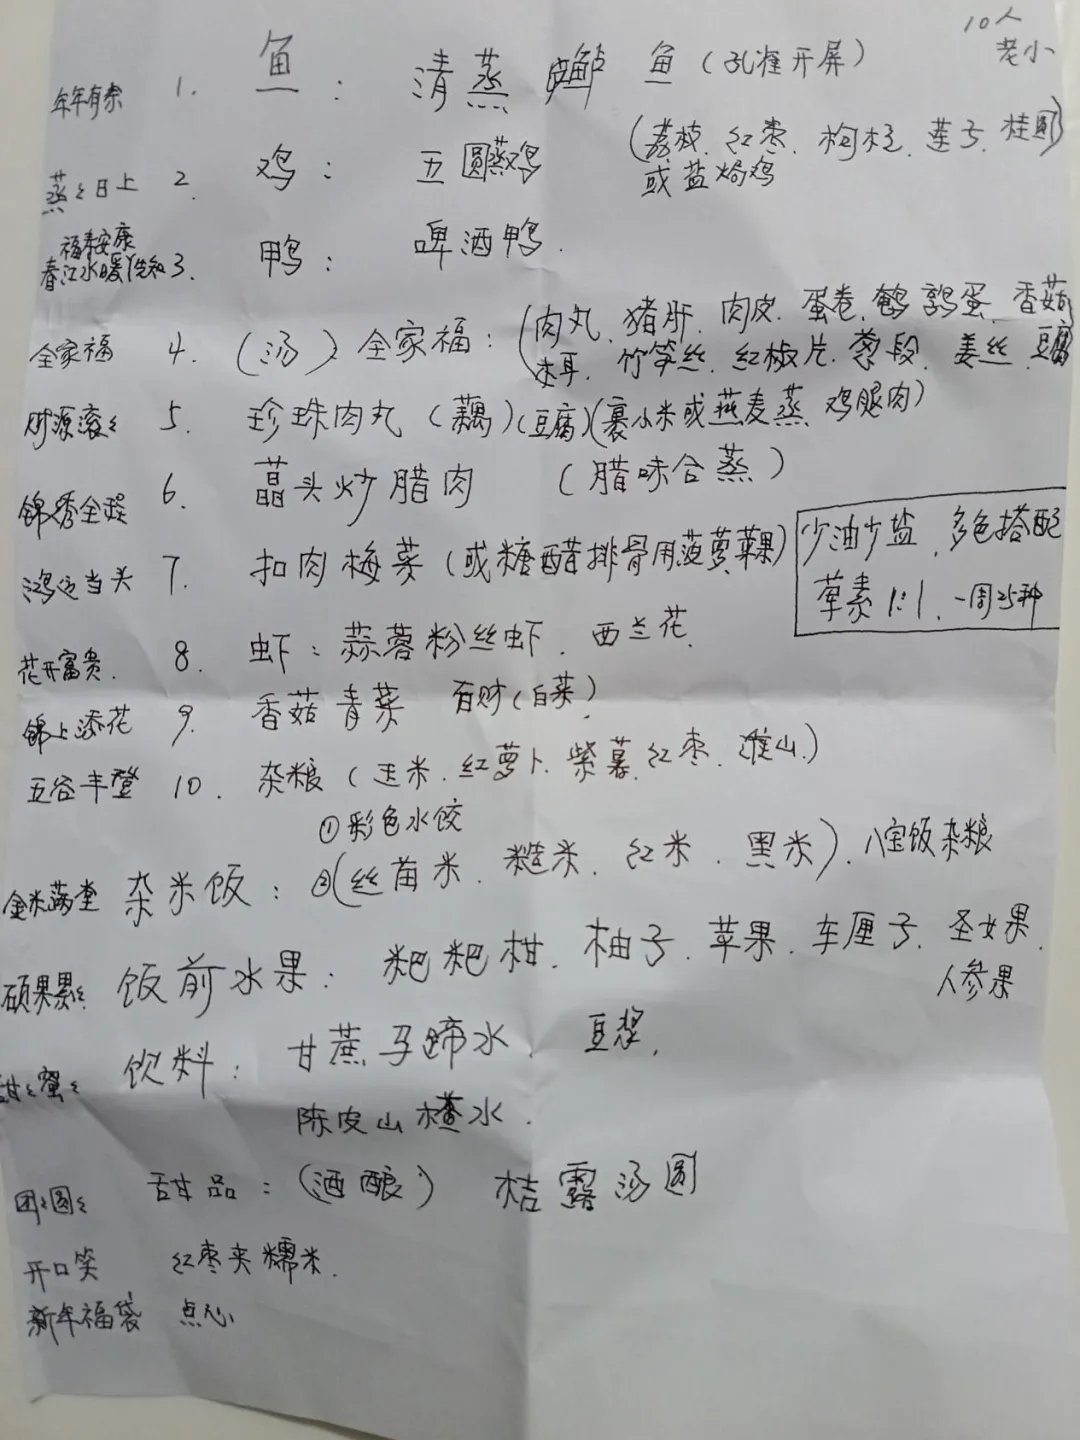 10人
老小
年年有余 1. 鱼: 清蒸鲈鱼(孔雀开屏)
蒸々日上 2. 鸡: 五圆蒸鸡 (荔枝、红枣、枸杞、莲子、桂圆)
或盐焗鸡
福泰安康
春江水暖鸭先知 3. 鸭: 啤酒鸭.
全家福 4. (汤) 全家福: (肉丸、猪肝、肉皮、蛋卷、鹌鹑蛋、香菇
木耳、竹笋丝、红椒片、葱段、姜丝、豆腐
财源滚々 5. 珍珠肉丸(藕)(豆腐)(裹小米或燕麦蒸 鸡腿肉)
锦秀全程 6. 藠头炒腊肉 (腊味合蒸)
鸿运当头 7. 扣肉梅菜(或糖醋排骨用菠萝苹果)
少油少盐, 多色搭配
荤素1:1, 一周25种
花开富贵. 8. 虾: 蒜蓉粉丝虾. 西兰花.
锦上添花 9. 香菇青菜 百财(白菜)
五谷丰登 10. 杂粮(玉米、红萝卜、紫薯、红枣、淮山)
①彩色水饺
金米满堂 杂米饭: ②(丝苗米、糙米、红米、黑米). 八宝饭杂粮
硕果累々 饭前水果: 粑粑柑、柚子、苹果、车厘子、圣女果、
人参果
甜々蜜々 饮料: 甘蔗马蹄水、豆浆,
陈皮山楂水.
团々圆々 甜品: (酒酿) 桔露汤圆
开口笑 红枣夹糯米.
新年福袋 点心